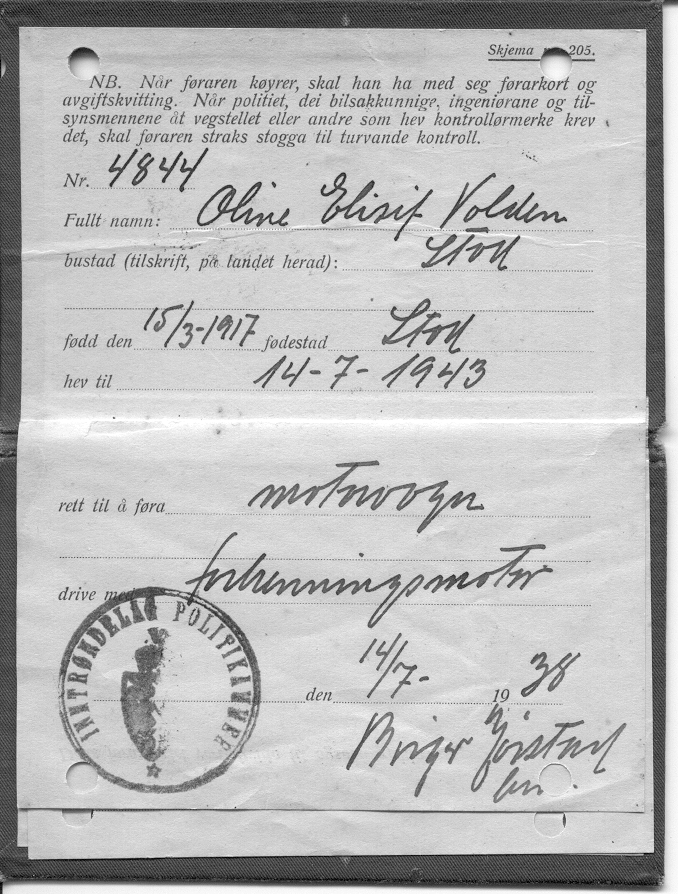 Skjema nr. 205.
NB. Når føraren køyrer, skal han ha med seg førarkort og
avgiftskvitting. Når politiet, dei bilsakkunnige, ingeniørane og til-
synsmennene åt vegstellet eller andre som hev kontrollørmerke krev
det, skal føraren straks stogga til turvande kontroll.
Nr. 4844
Fullt namn: Oline Elisif Volden
bustad (tilskrift, på landet herad): Stod
fødd den 15/3-1917 fødestad Stod
hev til 14-7-1943
rett til å føra motorvogn
drive med forbrenningsmotor
INNTRØNDELAG POLITIKAMMER
den 14/7- 19 38
Birger Gjørstad